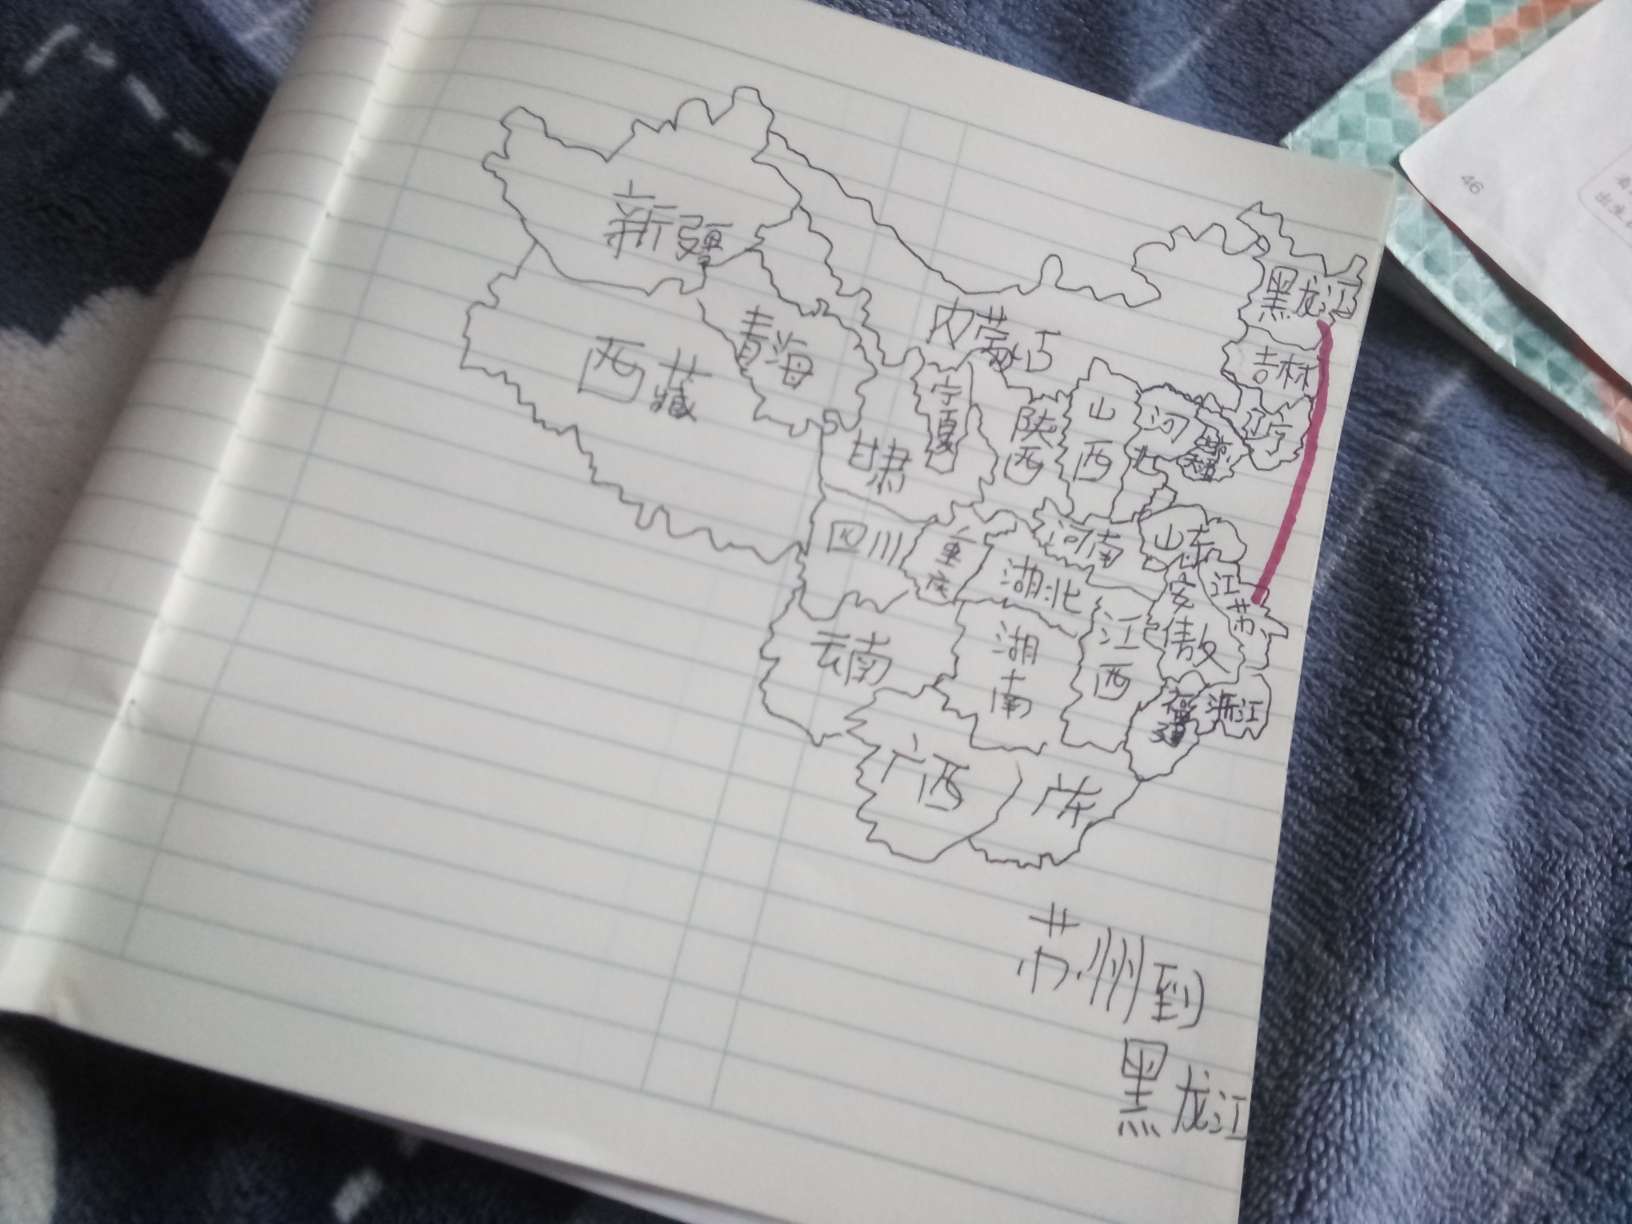 新疆
黑龙江
内蒙古
青海
吉林
西藏
宁夏
陕西
山西
河北
辽宁
甘肃
四川
重庆
河南
山东
湖北
江苏
安徽
云南
湖南
江西
福建
浙江
广西
广东
苏州到
黑龙江
46